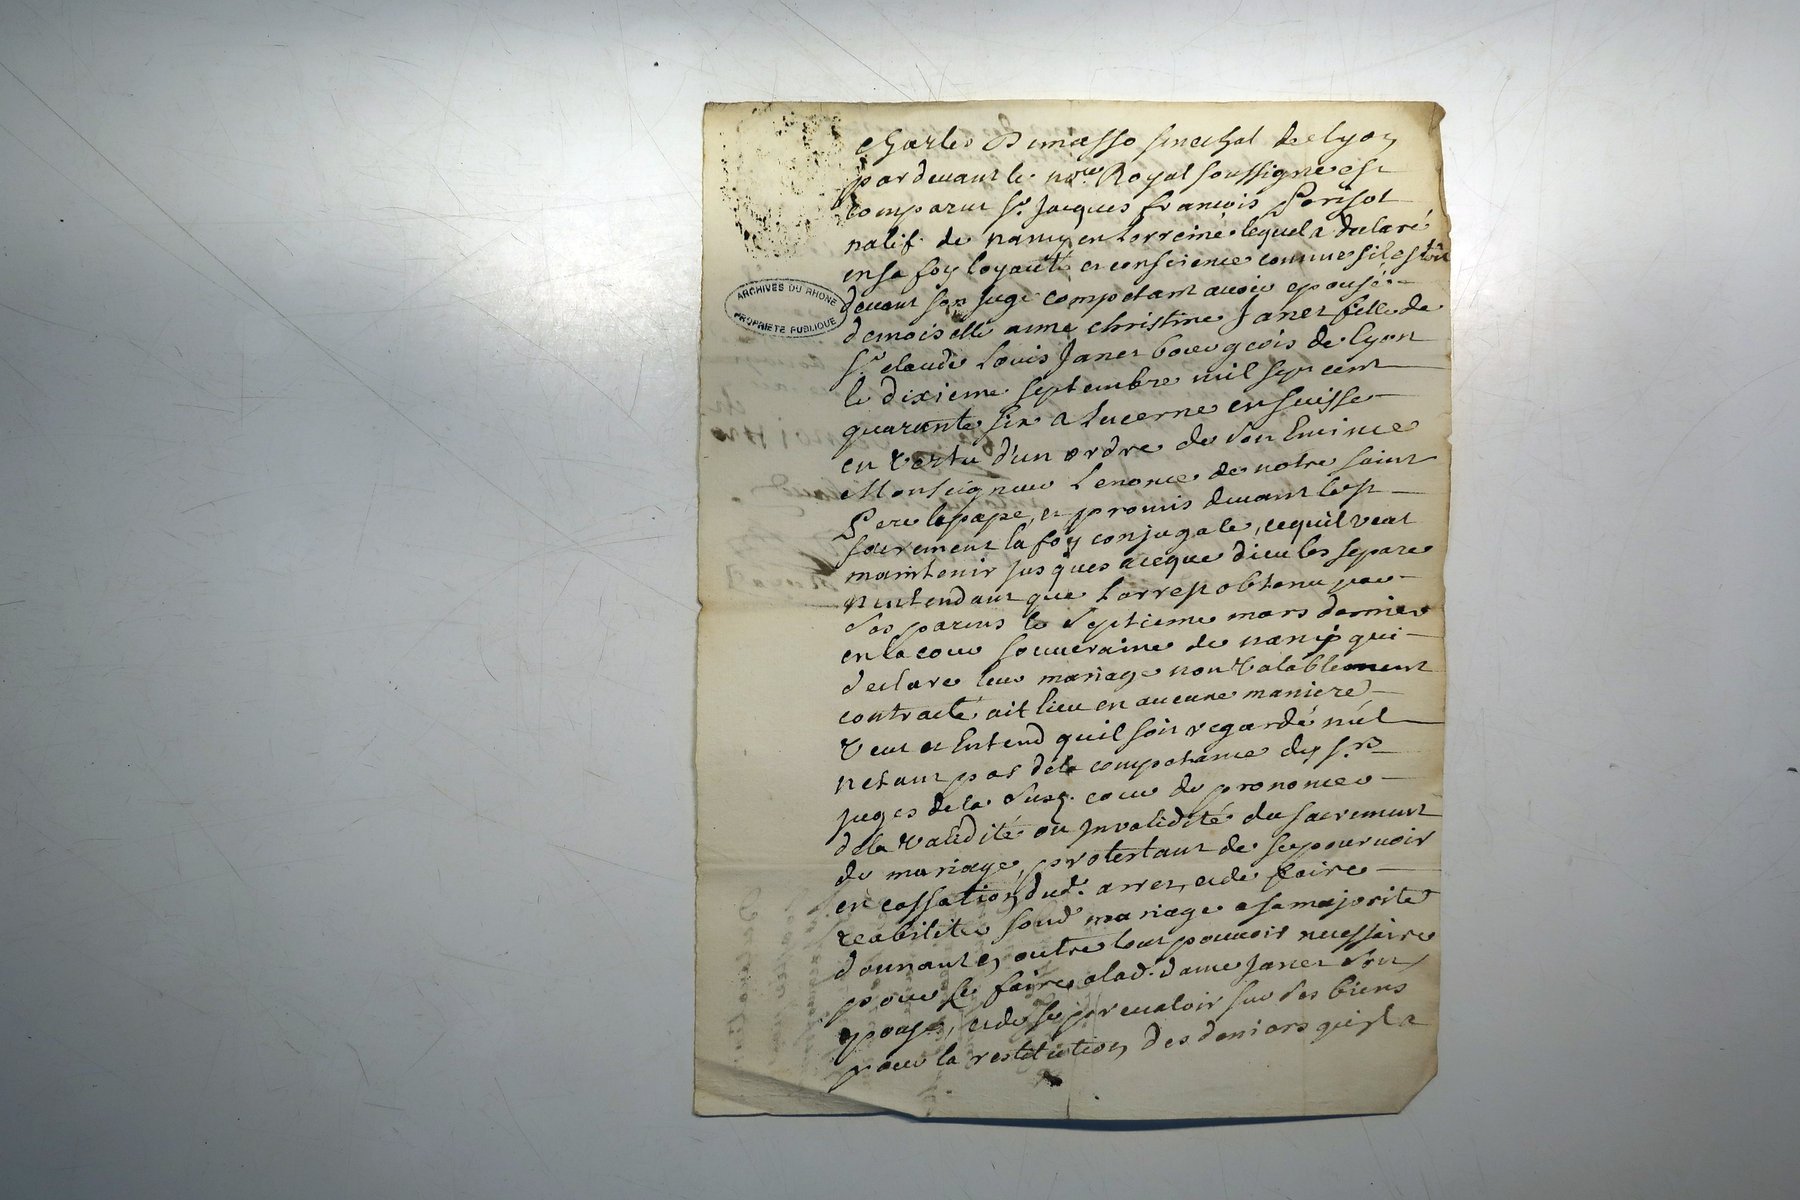 Charles Demasso senechal de Lyon
par devant le no.re Royal soussigné est
comparut Sr. Jacques francois Parisot
natif de nancy en Lorreine lequel a declaré
en sa foy loyauté et conscience comme sil estoit
devant son juge competant avoir epousée
demoiselle anne christine Janet fille de
Sr. claude Louis Janet bourgeois de Lyon
le dixieme septembre mil sept cent
quarante six a Lucerne en suisse
en vertu d'un ordre de son Emince
Monseigneur Lenonce de notre saint
Pere le pape, et promis devant le st.
sacrement la foy conjugale, ce quil veut
maintenir jusques aceque dieu les separe
nentendant que Larrest obtenu par
ses parens le septieme mars dernier
en la cour souveraine de nancy qui
declare leur mariage non valablement
contracté ait lieu en aucune maniere
veut et Entend quil soit regardé nul
netant pas dela competance des srs
juges de la susd. cour de prononcer
dela validité ou Jnvalidité du sacrement
de mariage, protestant de se pourvoir
en cassation dud. arrest, et de faire
reabiliter sond mariage a sa majorité
donnant en outre tout pouvoir necessaire
pour le faire a lad. dame Janet son
epouse, et de se prevaloir sur ses biens
pour la restitution des deniers quil a
ARCHIVES DU RHONE
PROPRIETE PUBLIQUE